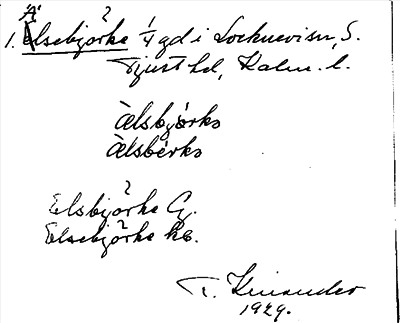 Ä
1. Elsebjörke 1/4 gd i Locknevi sn, S.
Tjust hd, Kalm. l.
Älsbjörko
Älsbérko
Elsbjörke G.
Elsebjörke kb.
T. Kinander
1929.